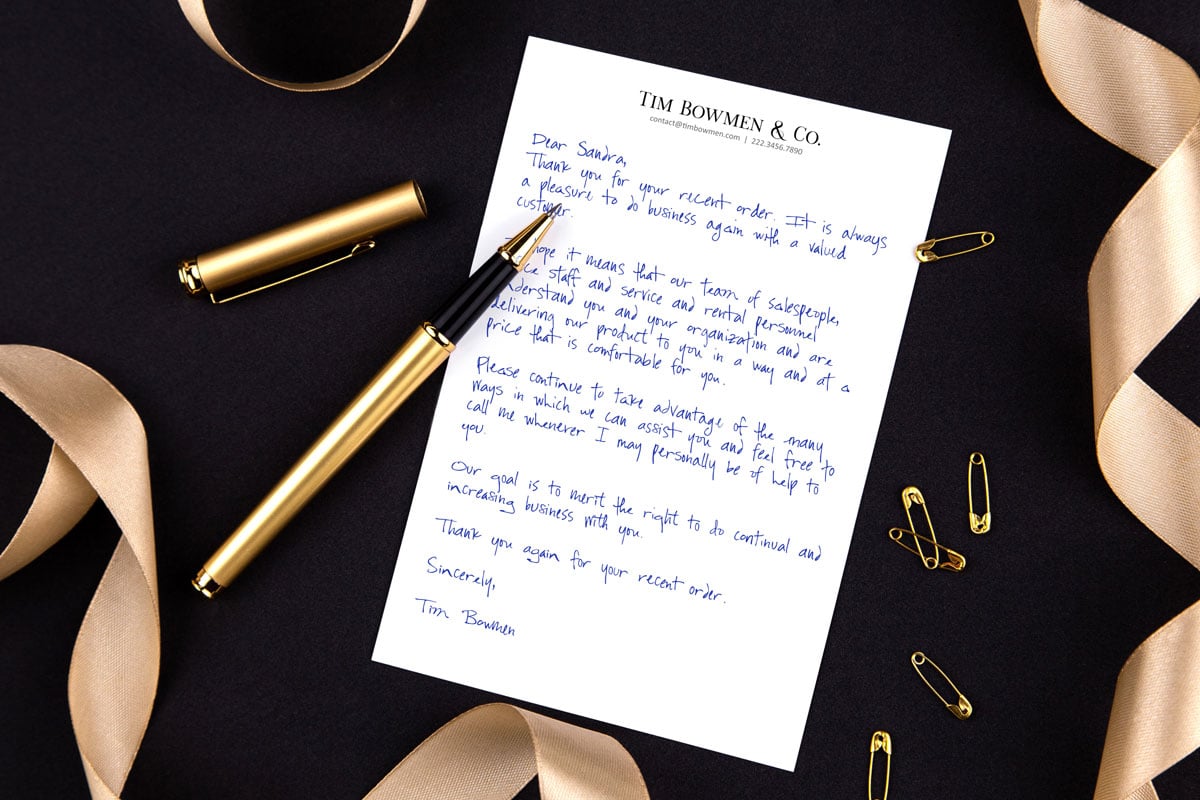 TIM BOWMEN & CO.
contact@timbowmen.com | 222.3456.7890
Dear Sandra,
Thank you for your recent order. It is always
a pleasure to do business again with a valued
customer.
hope it means that our team of salespeople,
staff and service and rental personnel
understand you and your organization and are
delivering our product to you in a way and at a
price that is comfortable for you.
Please continue to take advantage of the many
ways in which we can assist you and feel free to
call me whenever I may personally be of help to
you.
Our goal is to merit the right to do continual and
increasing business with you.
Thank you again for your recent order.
Sincerely,
Tim Bowmen